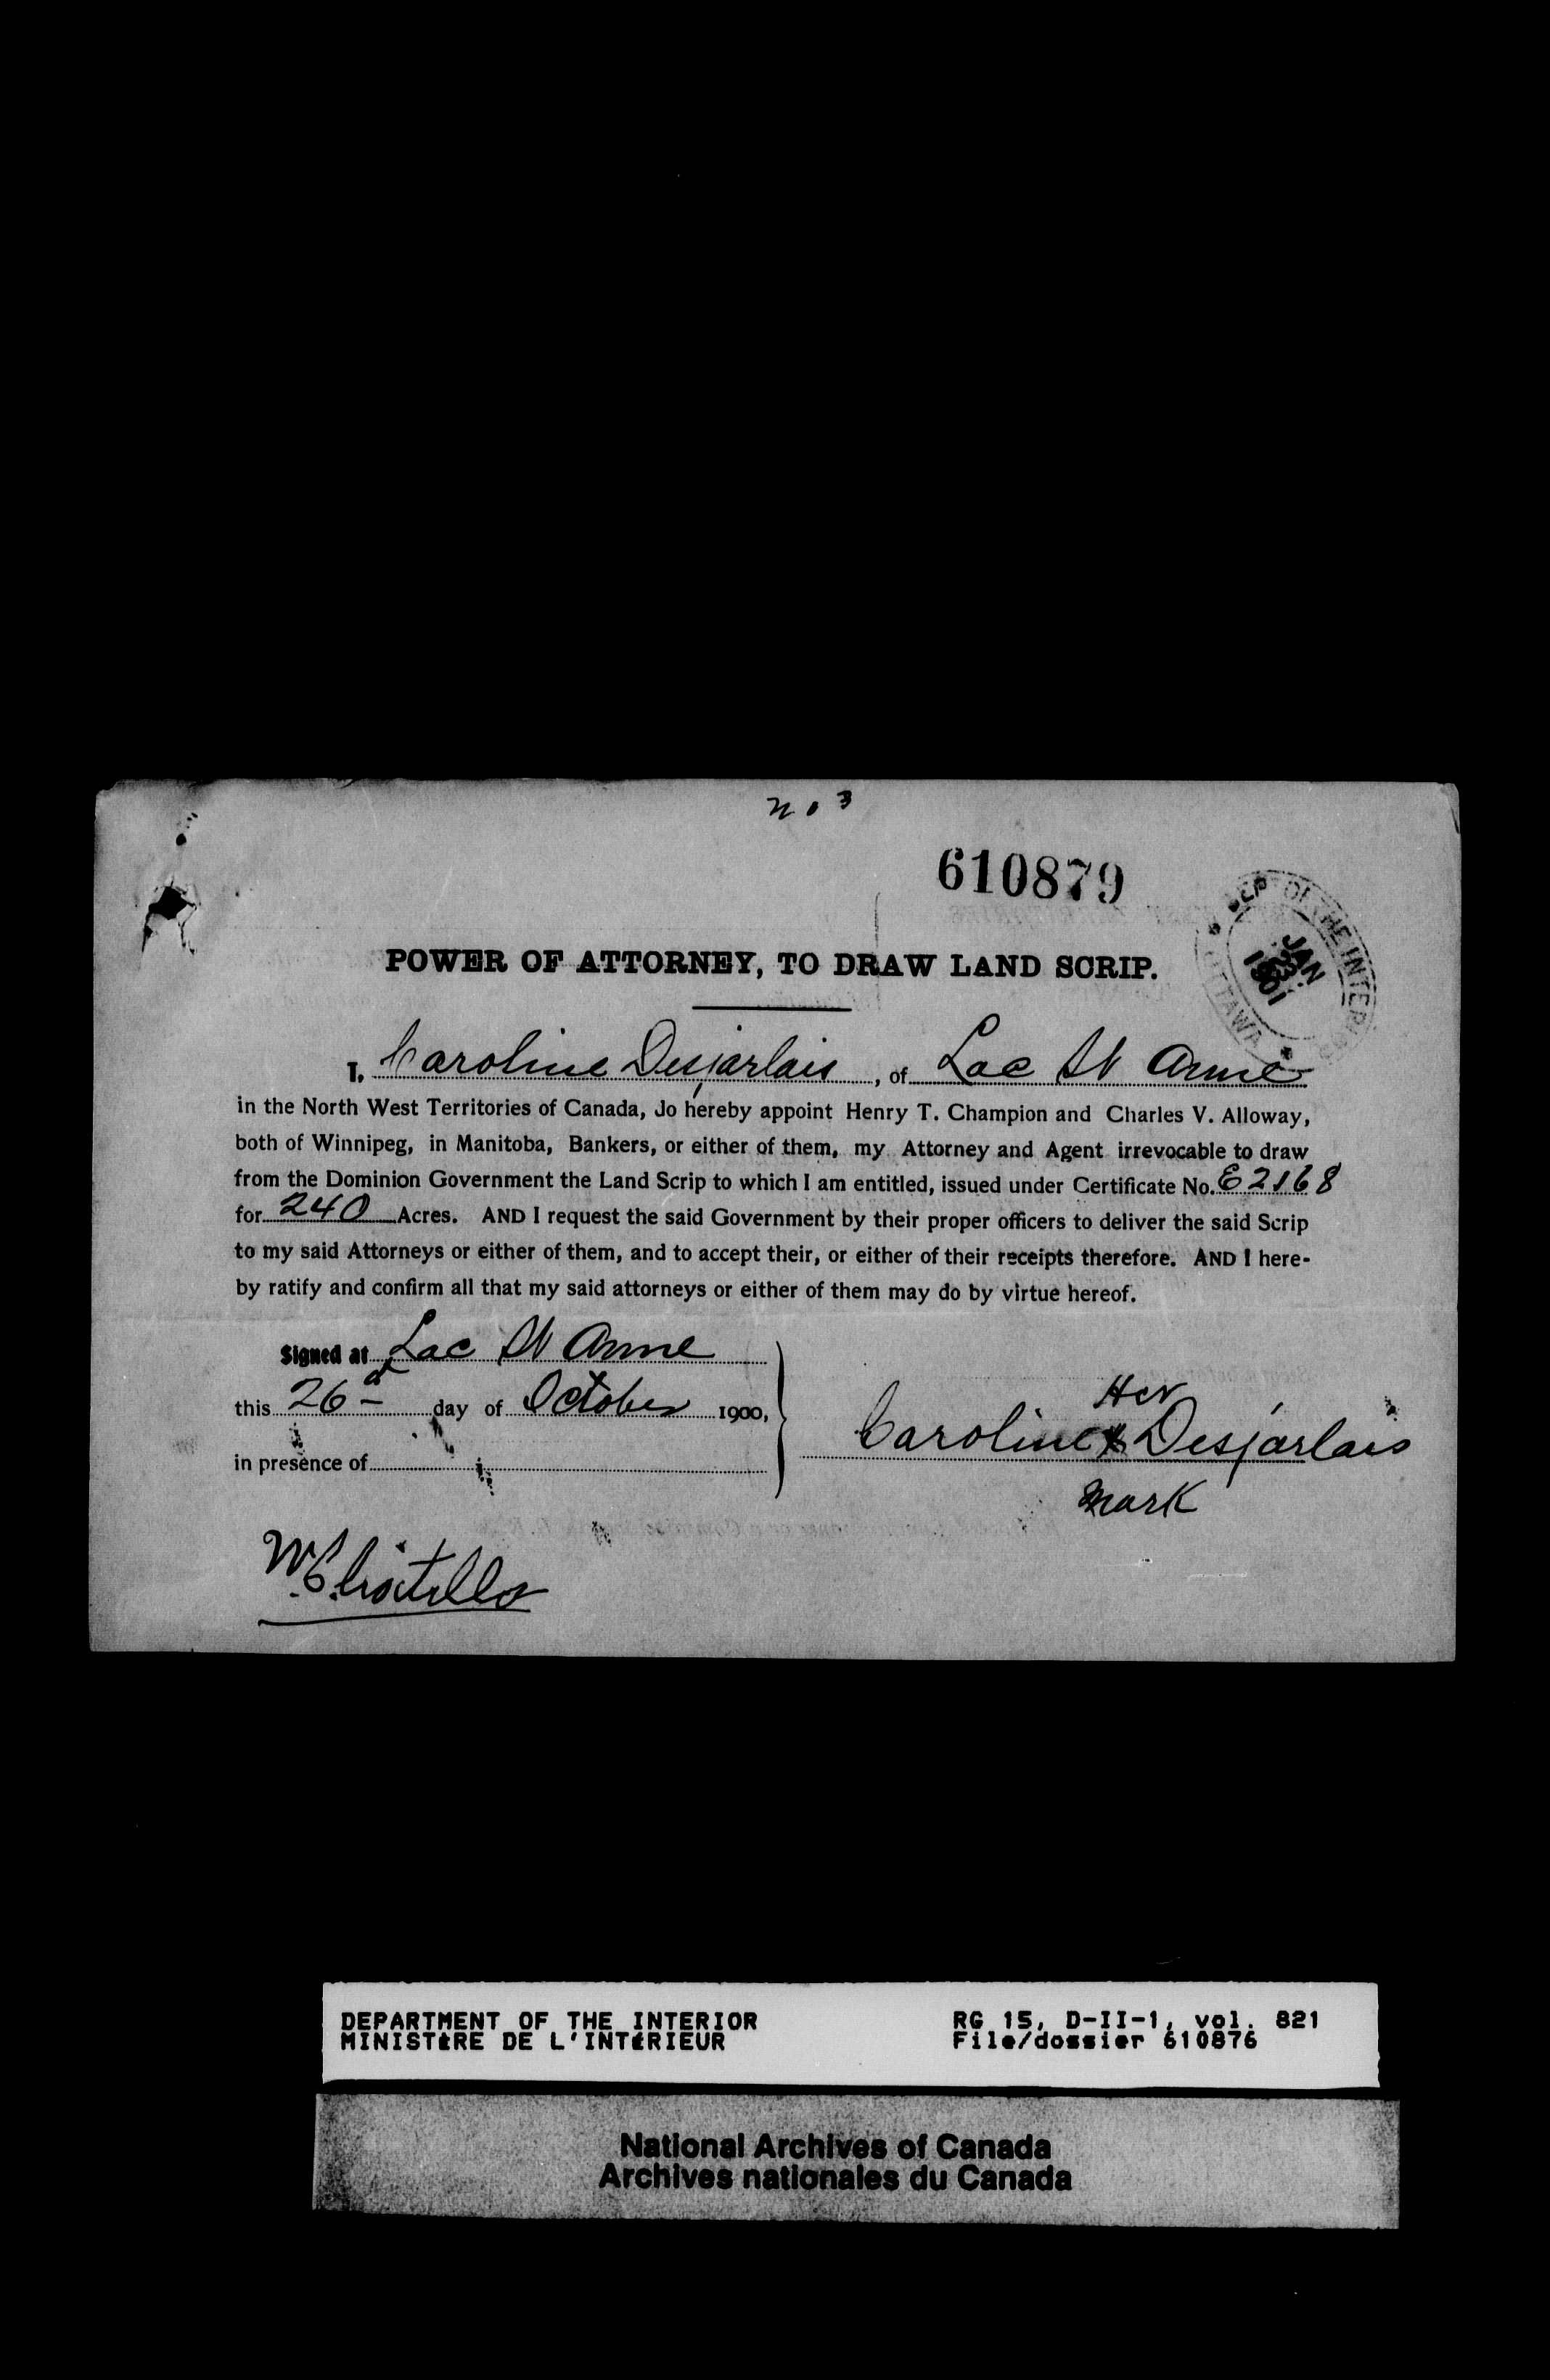 No 3
610879
DEPT OF THE INTERIOR
JAN 23 1901
OTTAWA
POWER OF ATTORNEY, TO DRAW LAND SCRIP.
I, Caroline Desjarlais, of Lac St Anne
in the North West Territories of Canada, Jo hereby appoint Henry T. Champion and Charles V. Alloway,
both of Winnipeg, in Manitoba, Bankers, or either of them, my Attorney and Agent irrevocable to draw
from the Dominion Government the Land Scrip to which I am entitled, issued under Certificate No. E2168
for 240 Acres. AND I request the said Government by their proper officers to deliver the said Scrip
to my said Attorneys or either of them, and to accept their, or either of their receipts therefore. AND I here-
by ratify and confirm all that my said attorneys or either of them may do by virtue hereof.
Signed at Lac St Anne
this 26 day of October 1900,
in presence of
Her
Caroline X Desjarlais
mark
DEPARTMENT OF THE INTERIOR RG 15, D-II-1, vol. 821
MINISTÈRE DE L'INTÉRIEUR File/dossier 610876
National Archives of Canada
Archives nationales du Canada